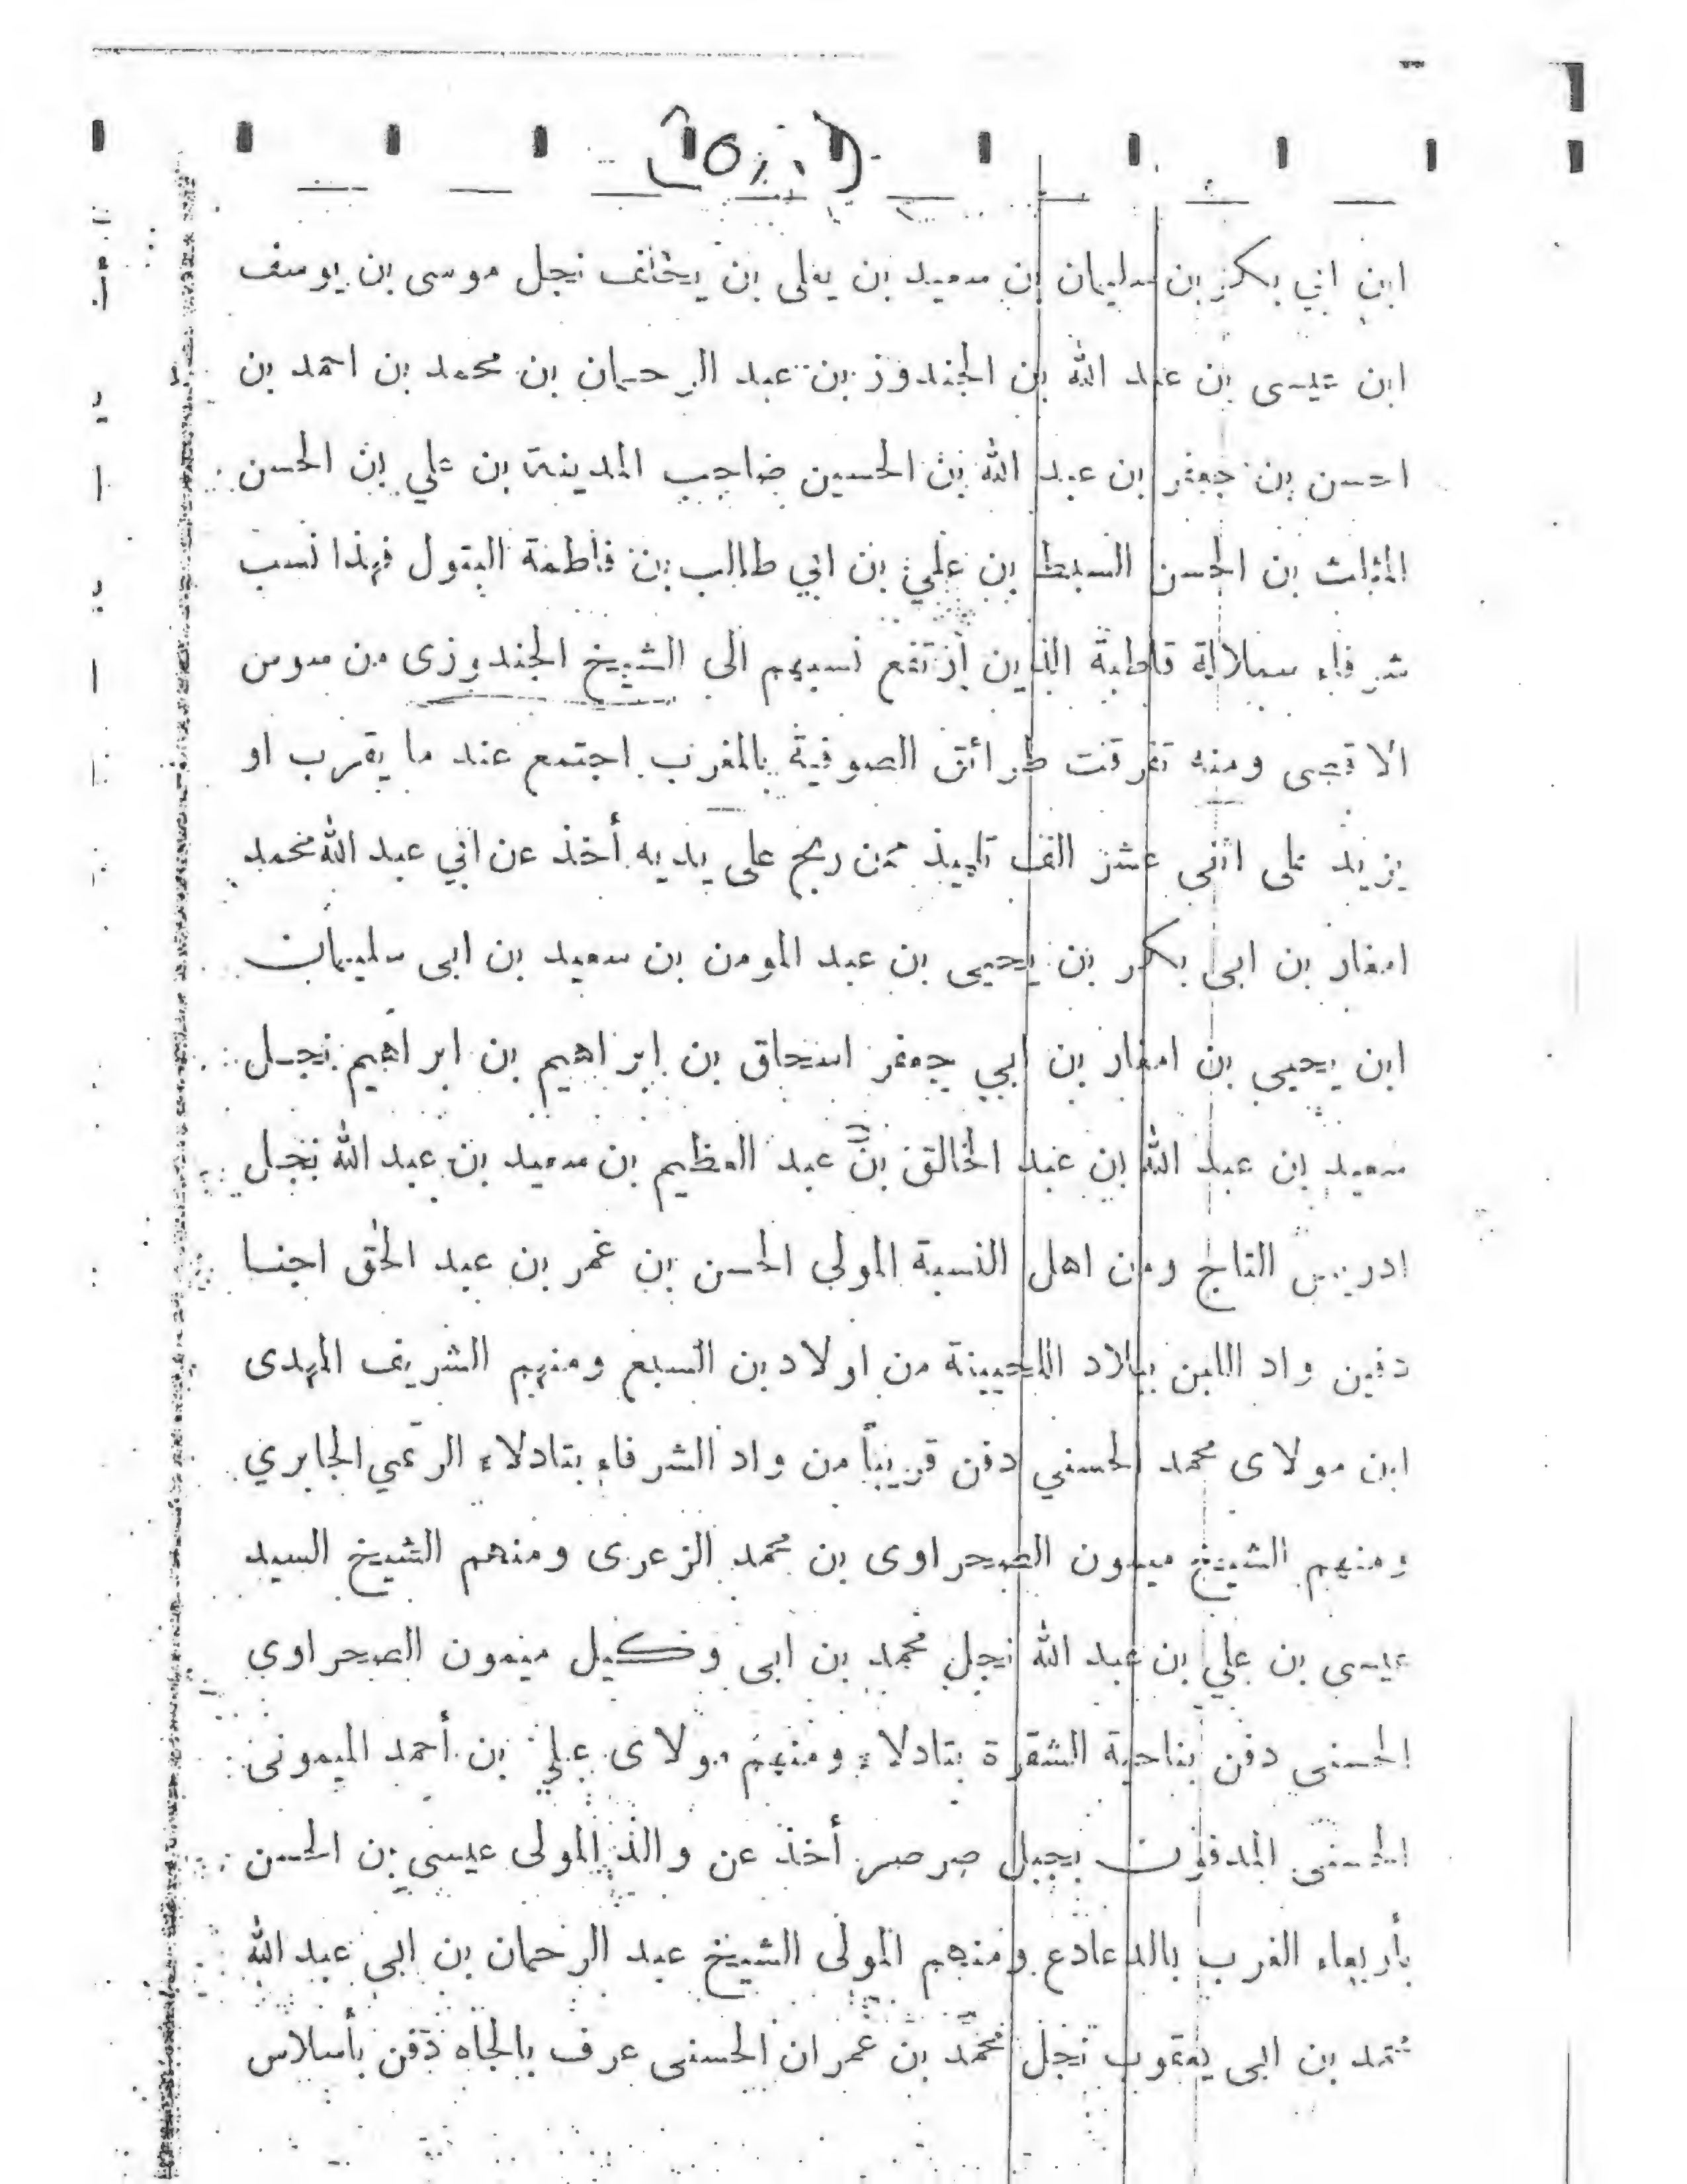 ابن ابي بكر بن سليمان بن سعيد بن يعلى بن يخلف نجل موسى بن يوسف
ابن عيسى بن عبد الله بن الجندوز بن عبد الرحمان بن محمد بن احمد بن
احسن بن جعفر بن عبد الله بن الحسين صاحب المدينة بن علي بن الحسن
المثلث بن الحسن السبط بن علي بن ابي طالب بن فاطمة البتول فهذا نسب
شرفاء سلالة قاطبة الذين ارتفع نسبهم الى الشيخ الجندوزى من سوس
الاقصى ومنه تفرقت طرائق الصوفية بالمغرب اجتمع عند ما يقرب او
يزيد على اثنى عشر الف تلميذ ممن ربح على يديه أخذ عن ابي عبد الله محمد
امغار بن ابى بكر بن يحيى بن عبد المومن بن سعيد بن ابى سليمان
ابن يحيى بن امغار بن ابي جعفر اسحاق بن ابراهيم بن ابراهيم نجل
سعيد بن عبد الله بن عبد الخالق بن عبد العظيم بن سعيد بن عبد الله نجل
ادريس التاج ومن اهل النسبة المولى الحسن بن عمر بن عبد الحق اجنا
دفين واد اللبن ببلاد اللحيينة من اولاد بن السبع ومنهم الشريف المهدى
ابن مولاى محمد الحسني دفن قريباً من واد الشرفاء بتادلاء الرتمي الجابري
ومنهم الشيخ ميمون الصحراوى بن محمد الزعرى ومنهم الشيخ السيد
عيسى بن علي بن عبد الله نجل محمد بن ابى وكيل ميمون الصحراوى
الحسنى دفن بناحية الشقرة بتادلاء ومنهم مولاى علي بن أحمد الميمونى
الحسنى المدفون بجبل صرصر أخذ عن والد المولى عيسى بن الحسن
بأربعاء الغرب بالدعادع ومنهم المولى الشيخ عبد الرحمان بن ابى عبد الله
محمد بن ابى يعقوب نجل محمد بن عمران الحسنى عرف بالجاه دفن بأسلاس